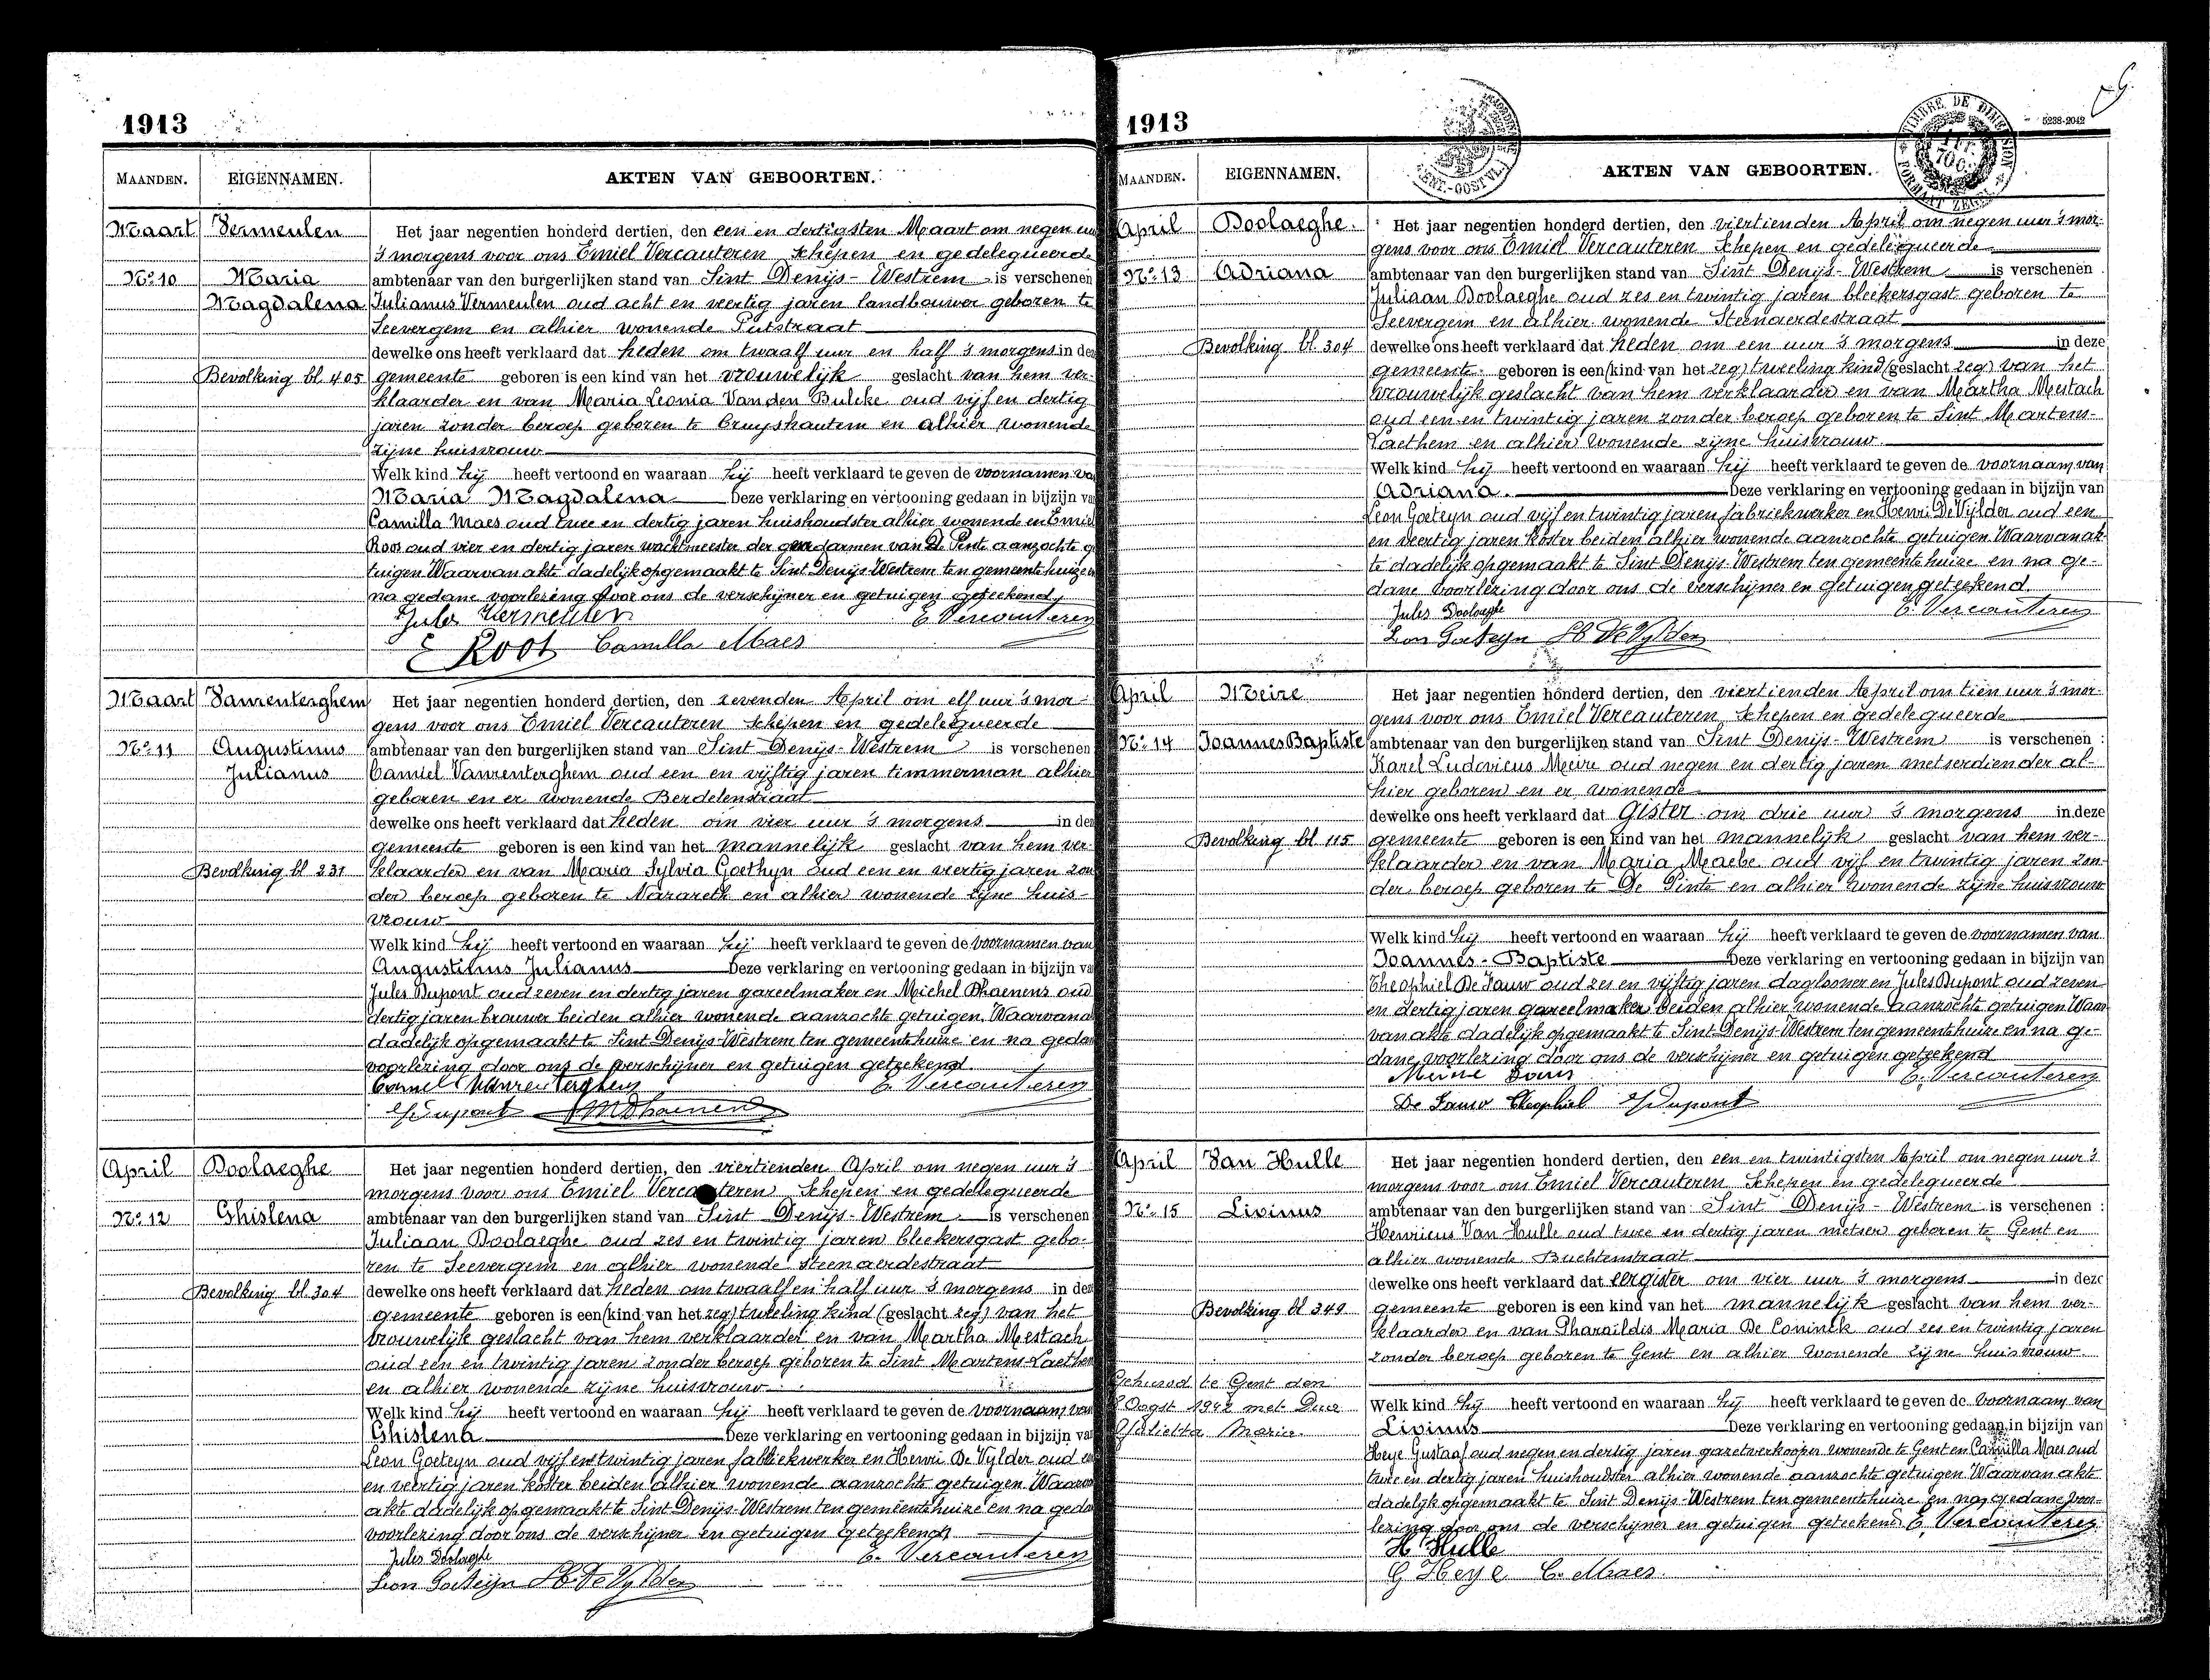 1913
MAANDEN. EIGENNAMEN. AKTEN VAN GEBOORTEN.
Maart Vermeulen
Nº 10 Maria
Magdalena
Bevolking bl 405
Het jaar negentien honderd dertien, den een en dertigsten Maart om negen uur
's morgens voor ons Emiel Vercauteren schepen en gedelegueerde
ambtenaar van den burgerlijken stand van Sint Denijs-Westrem is verschenen
Julianus Vermeulen oud acht en veertig jaren landbouwer geboren te
Seevergem en alhier wonende Putstraat
dewelke ons heeft verklaard dat heden om twaalf uur en half 's morgens in deze
gemeente geboren is een kind van het vrouwelijk geslacht van hem ver-
klaarder en van Maria Leonia Vanden Bulcke oud vijf en dertig
jaren zonder beroep geboren te Cruyshautem en alhier wonende
zijne huisvrouw
Welk kind hij heeft vertoond en waaraan hij heeft verklaard te geven de voornamen va
Maria Magdalena Deze verklaring en vertooning gedaan in bijzijn va
Camilla Maes oud twee en dertig jaren huishoudster alhier wonende en Emiel
Roos oud vier en dertig jaren wachtmeester der gendarmen van De Pinte aanzochte ge
tuigen Waarvan akte dadelijk opgemaakt te Sint Denijs Westrem ten gemeentehuize en
na gedane voorlezing door ons de verschijner en getuigen geteekend
Jules Vermeulen E Vercauteren
E Roos Camilla Maes
Maart Vanrenterghem
Nº 11 Augustinus
Julianus
Bevolking bl 231
Het jaar negentien honderd dertien, den zevenden April om elf uur 's mor-
gens voor ons Emiel Vercauteren schepen en gedelegueerde
ambtenaar van den burgerlijken stand van Sint Denijs-Westrem is verschenen
Camiel Vanrenterghem oud een en vijftig jaren timmerman alhier
geboren en er wonende Berdelenstraat
dewelke ons heeft verklaard dat heden om vier uur 's morgens in deze
gemeente geboren is een kind van het mannelijk geslacht van hem ver-
klaarder en van Maria Sylvia Goethyn oud een en veertig jaren zon
der beroep geboren te Nazareth en alhier wonende zijne huis-
vrouw
Welk kind hij heeft vertoond en waaraan hij heeft verklaard te geven de voornamen van
Augustinus Julianus Deze verklaring en vertooning gedaan in bijzijn va
Jules Dupont oud zeven en dertig jaren gareelmaker en Michel Dhaenens oud
dertig jaren brouwer beiden alhier wonende aanzochte getuigen. Waarvan a
dadelijk opgemaakt te Sint Denijs-Westrem ten gemeentehuize en na gedan
voorlezing door ons de verschijner en getuigen geteekend.
Camiel Vanrenterghem E. Vercauteren
J Dupont MDhaenens
April Boolaeghe
Nº 12 Ghislena
Bevolking bl 304
Het jaar negentien honderd dertien, den viertienden April om negen uur 's
morgens voor ons Emiel Vercauteren schepen en gedelegueerde
ambtenaar van den burgerlijken stand van Sint Denijs-Westrem is verschenen
Juliaan Boolaeghe oud zes en twintig jaren bleekersgast gebo-
ren te Seevergem en alhier wonende Steenaerdestraat
dewelke ons heeft verklaard dat heden om twaalf en half uur 's morgens in deze
gemeente geboren is een (kind van het zeg) tweeling kind (geslacht zeg) van het
vrouwelijk geslacht van hem verklaarder en van Martha Mestach
oud een en twintig jaren zonder beroep geboren te Sint Martens-Laethem
en alhier wonende zijne huisvrouw
Welk kind hij heeft vertoond en waaraan hij heeft verklaard te geven de voornaam van
Ghislena Deze verklaring en vertooning gedaan in bijzijn va
Leon Goeteyn oud vijf en twintig jaren fabriekwerker en Henri De Vylder oud een
en veertig jaren koster beiden alhier wonende aanzochte getuigen. Waarvan
akte dadelijk opgemaakt te Sint Denijs-Westrem ten gemeentehuize en na gedan
voorlezing door ons de verschijner en getuigen geteekend
Jules Boolaeghe E. Vercauteren
Leon Goeteyn Hr De Vylder
1913
5238-2042
MAANDEN. EIGENNAMEN. AKTEN VAN GEBOORTEN.
April Boolaeghe.
Nº 13 Adriana
Bevolking bl 304
Het jaar negentien honderd dertien, den viertienden April om negen uur 's mor-
gens voor ons Emiel Vercauteren schepen en gedelegueerde
ambtenaar van den burgerlijken stand van Sint Denijs-Westrem is verschenen
Juliaan Boolaeghe oud zes en twintig jaren bleekersgast geboren te
Seevergem en alhier wonende Steenaerdestraat
dewelke ons heeft verklaard dat heden om een uur 's morgens in deze
gemeente geboren is een (kind van het zeg) tweeling kind (geslacht zeg) van het
vrouwelijk geslacht van hem verklaarder en van Martha Mestach
oud een en twintig jaren zonder beroep geboren te Sint Martens-
Laethem en alhier wonende zijne huisvrouw
Welk kind hij heeft vertoond en waaraan hij heeft verklaard te geven de voornaam van
Adriana. Deze verklaring en vertooning gedaan in bijzijn van
Leon Goeteyn oud vijf en twintig jaren fabriekwerker en Henri De Vylder oud een
en veertig jaren koster beiden alhier wonende aanzochte getuigen. Waarvan ak-
te dadelijk opgemaakt te Sint Denijs-Westrem ten gemeentehuize en na ge-
dane voorlezing door ons de verschijner en getuigen geteekend.
Jules Boolaeghe E. Vercauteren
Leon Goeteyn Hr De Vylder
April Meire
Nº 14 Joannes Baptiste
Bevolking bl 115
Het jaar negentien honderd dertien, den viertienden April om tien uur 's mor-
gens voor ons Emiel Vercauteren schepen en gedelegueerde
ambtenaar van den burgerlijken stand van Sint Denijs-Westrem is verschenen :
Karel Ludovicus Meire oud negen en dertig jaren metserdiender al-
hier geboren en er wonende
dewelke ons heeft verklaard dat Gister om drie uur 's morgens in deze
gemeente geboren is een kind van het mannelijk geslacht van hem ver-
klaarder en van Maria Maebe oud vijf en twintig jaren zon-
der beroep geboren te De Pinte en alhier wonende zijne huisvrouw
Welk kind hij heeft vertoond en waaraan hij heeft verklaard te geven de voornamen van
Joannes-Baptiste Deze verklaring en vertooning gedaan in bijzijn van
Theophiel De Pauw oud zes en vijftig jaren daglooner en Jules Dupont oud zeven
en dertig jaren gareelmaker beiden alhier wonende aanzochte getuigen Waar
van akte dadelijk opgemaakt te Sint Denijs-Westrem ten gemeentehuize en na ge-
dane voorlezing door ons de verschijner en getuigen geteekend
Meire E. Vercauteren
De Pauw Theophiel J Dupont
April Van Hulle
Nº 15 Livinus
Bevolking bl 349
Gehuwd te Gent den
Oogst 1942 met
Marie.
Het jaar negentien honderd dertien, den een en twintigsten April om negen uur 's
morgens voor ons Emiel Vercauteren schepen en gedelegueerde
ambtenaar van den burgerlijken stand van Sint Denijs-Westrem is verschenen :
Henricus Van Hulle oud twee en dertig jaren metser geboren te Gent en
alhier wonende Buchtenstraat
dewelke ons heeft verklaard dat eergister om vier uur 's morgens in deze
gemeente geboren is een kind van het mannelijk geslacht van hem ver-
klaarder en van Pharaildis Maria De Coninck oud zes en twintig jaren
zonder beroep geboren te Gent en alhier wonende zijne huisvrouw
Welk kind hij heeft vertoond en waaraan hij heeft verklaard te geven de voornaam van
Livinus Deze verklaring en vertooning gedaan in bijzijn van
Heye Gustaaf oud negen en dertig jaren gazetverkooper wonende te Gent en Camilla Maes oud
twee en dertig jaren huishoudster alhier wonende aanzochte getuigen Waarvan akte
dadelijk opgemaakt te Sint Denijs-Westrem ten gemeentehuize en na gedane voor-
lezing door ons de verschijner en getuigen geteekend E. Vercauteren
H Hulle
G Heye C. Maes